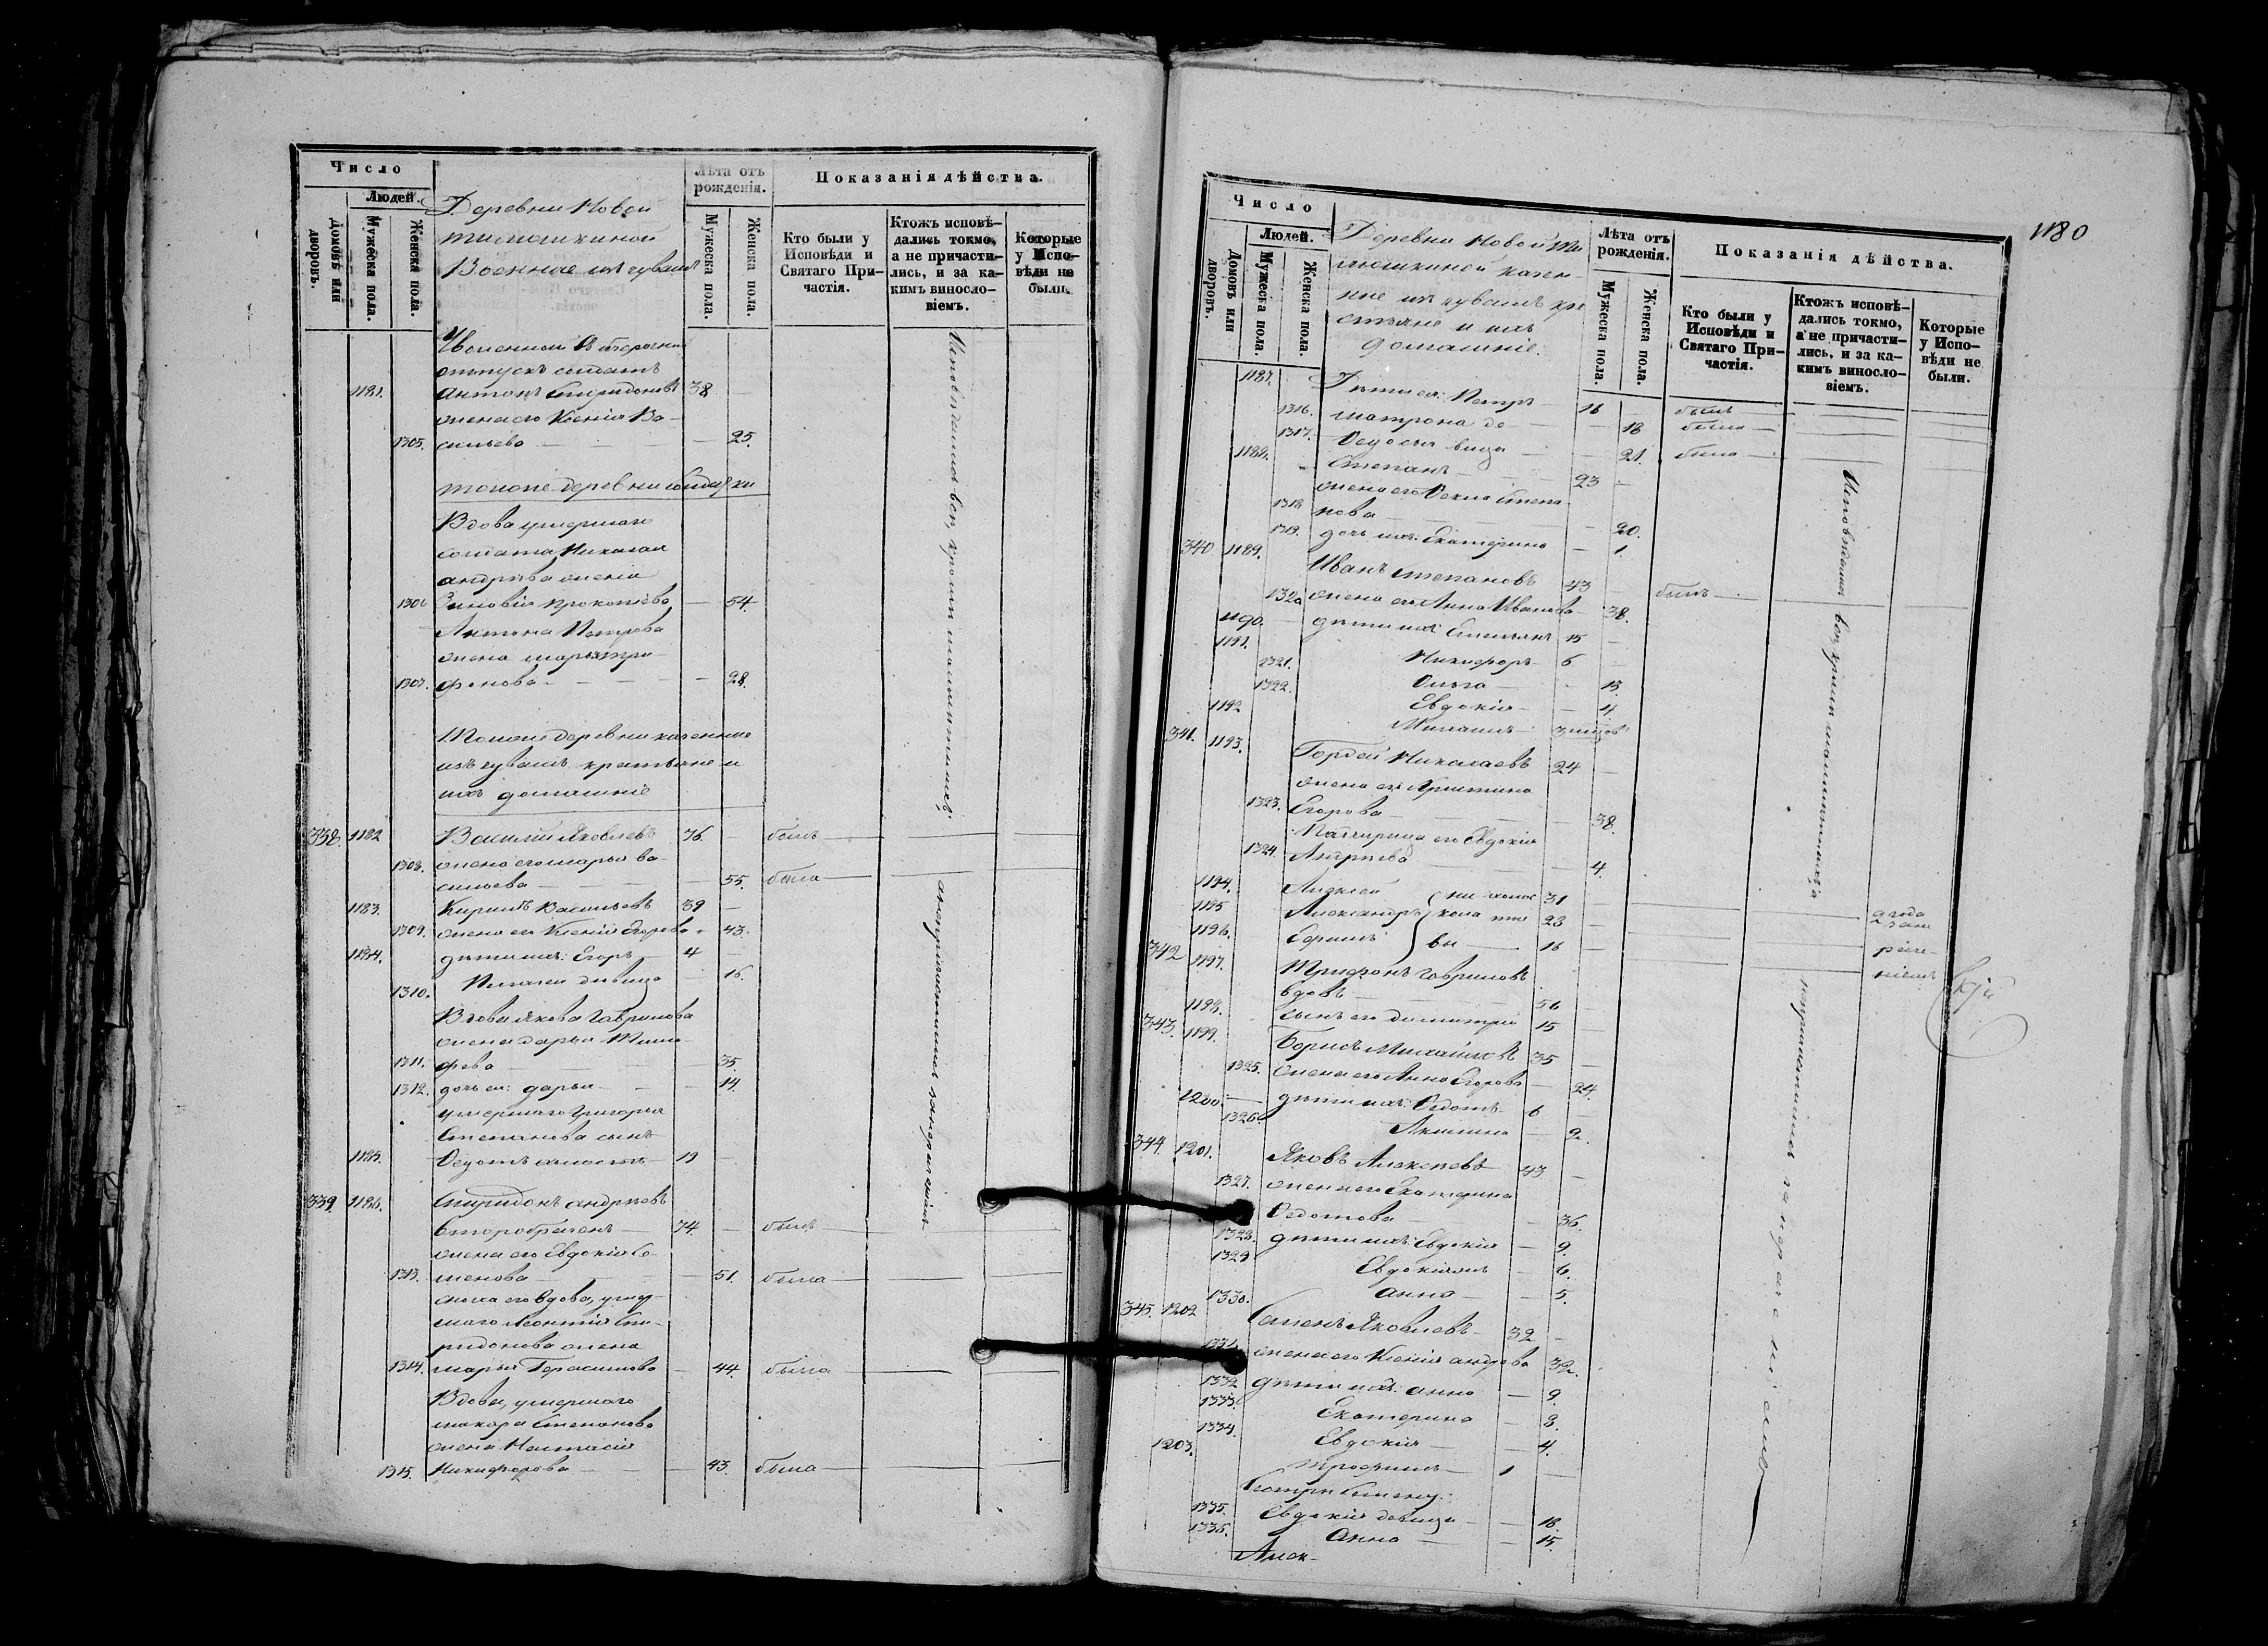 Число
Людей.
Домовъ или дворовъ.
Мужеска пола.
Женска пола.
Деревни Новой
тимошкиной
Военные изъ чувашъ
Лѣта отъ рожденія.
Мужеска пола.
Женска пола.
Показанія дѣйства.
Кто были у Исповѣди и Святаго Причастія.
Ктожъ исповѣдались токмо, а не причастились, и за какимъ винословіемъ.
Которые у Исповѣди не были.
отпускъ солдатъ
1181. Антонъ Спиридоновъ 38 —
жена его Ксенія Ва-
1305. сильева — — 25.
тоіоже деревни солдатки
Вдова умершаго
солдата Николая
андрѣева жена
1306 Зиновія прокопіева — 54
Антона Петрова
жена марья три-
1307. фонова — — 28.
Тоіоже деревни казенные
изъ чувашъ крестьяне и
ихъ домашніе
338. 1182 Василій Яковлевъ 76. — былъ —
1308. жена его марья ва-
сильева — — 55. была —
1183. Кирилъ Васильевъ 39 —
1309. жена его Ксенія Егорова — 43.
1184. дѣти ихъ: Егоръ — 4 —
1310. Пелагея дѣвица — 16.
Вдова Якова Гаврилова
жена дарья Тимо-
1311. фева — — 35.
1312. дочь ея: дарья — — 14.
умершаго Григорья
Степанова сынъ
1185. Ѳедотъ холостъ — 19 —
339. 1186. Спиридонъ андрѣевъ
второбраченъ — 74. — былъ —
жена его Евдокія Се-
1313. менова — — 51. была —
сноха его вдова, умер-
шаго Леонтія Спи-
ридонова жена
1314. марья Герасимова — 44. была —
Вдова, умершаго
макара Степанова
жена Настасія
1315. Никифорова — — 43. была —
Исповѣдались вси, кромѣ малолѣтнихъ,
а не причастились за нерачениемъ
1180
Число
Людей.
Домовъ или дворовъ.
Мужеска пола.
Женска пола.
Деревни Новой Ти
мошкиной казен
ные изъ чувашъ кре
стьяне и ихъ
домашніе.
Лѣта отъ рожденія.
Мужеска пола.
Женска пола.
Показанія дѣйства.
Кто были у Исповѣди и Святаго Причастія.
Ктожъ исповѣдались токмо, а не причастились, и за какимъ винословіемъ.
Которые у Исповѣди не были.
1187. Дѣти ея: Петръ — 16 — былъ —
1316. Матрона де — 18 была —
1317. Ѳедосья вица — 21. была —
1188. Степанъ — 23 —
жена его Ѳекла Степа
1318 нова — — 20.
1319. дочь ихъ: Екатерина — 1.
340. 1189. Иванъ степановъ 43 былъ —
1320 жена его Анна Иванова — 38.
1190. дѣти ихъ: 15 —
1191. Никифоръ 6 —
1321. Ольга — — 13.
1322. Евдокія — — 4
1192 Михаилъ —
341. 1193. Гордей Николаевъ 24 —
жена его Христина
1323. Егорова — — 38.
Падчерица его Евдокія
1324. Андрѣева — 4.
1194. Алексей 31 —
1195 Александръ 23 —
1196. Герасимъ 16 —
ни кола
вы
холос
тые
342 1197. Трифонъ Гавриловъ
вдовъ — 56 —
1198. сынъ его димитрій 15 —
343. 1199. Борисъ Михайловъ 35 —
1325. жена его Анна Егорова — 24.
1200. дѣти ихъ: Ѳедотъ 6 —
1326. Акилина — 2.
344. 1201. Яковъ Алексѣевъ 43 —
1327. жена его Екатерина
Ѳедотова — — 36.
1328. дѣти ихъ: Евдокія — 9.
1329 Евдокія — 6.
1330. Анна — — 5.
345. 1202 Семенъ Яковлевъ — 32 —
1331 жена его Ксенія андрѣева 32.
1332 дѣти ихъ: анна — 9.
1333. Екатерина — 8.
1334. Евдокія — — 4.
1203. Трофимъ — 1 —
Сестры Семену:
1335. Евдокія девица — — 18.
1336. Анна — — 15.
Алек-
Исповѣдались вси, кромѣ малолѣтнихъ,
а не причастились за нерачениемъ
2 года
за не
раче-
ніемъ